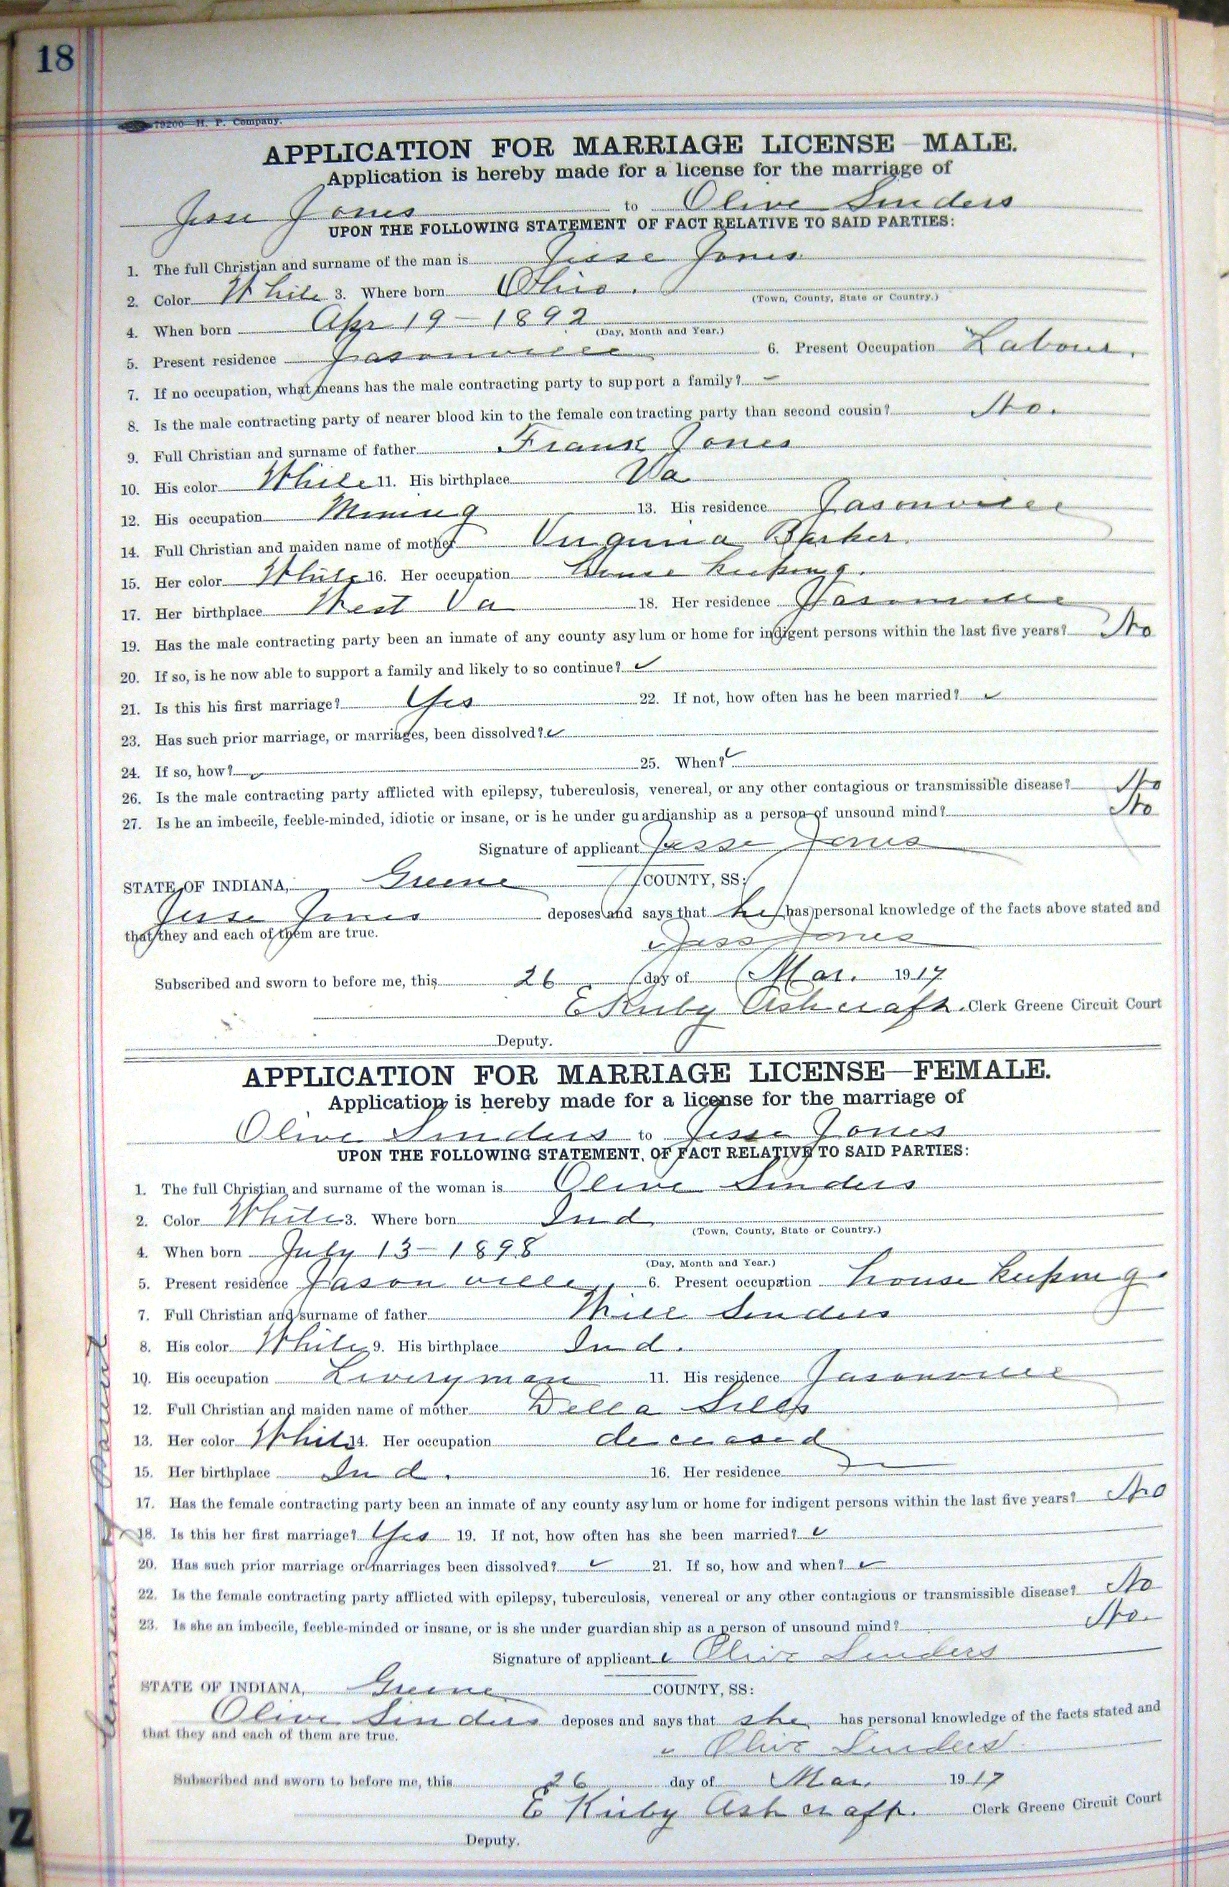 18
79200—H. P. Company.
APPLICATION FOR MARRIAGE LICENSE—MALE.
Application is hereby made for a license for the marriage of
Jesse Jones to Olive Sinders
UPON THE FOLLOWING STATEMENT OF FACT RELATIVE TO SAID PARTIES:
1. The full Christian and surname of the man is Jesse Jones
2. Color White 3. Where born Ohio.
(Town, County, State or Country.)
4. When born Apr 19 - 1892
(Day, Month and Year.)
5. Present residence Jasonville 6. Present Occupation Labour.
7. If no occupation, what means has the male contracting party to support a family? -
8. Is the male contracting party of nearer blood kin to the female contracting party than second cousin? No.
9. Full Christian and surname of father Frank Jones
10. His color White 11. His birthplace Va
12. His occupation Mining 13. His residence Jasonville
14. Full Christian and maiden name of mother Virginia Barker.
15. Her color White 16. Her occupation house keeping.
17. Her birthplace West Va 18. Her residence Jasonville
19. Has the male contracting party been an inmate of any county asylum or home for indigent persons within the last five years? No
20. If so, is he now able to support a family and likely to so continue? ✓
21. Is this his first marriage? Yes 22. If not, how often has he been married? ✓
23. Has such prior marriage, or marriages, been dissolved? ✓
24. If so, how? ✓ 25. When? ✓
26. Is the male contracting party afflicted with epilepsy, tuberculosis, venereal, or any other contagious or transmissible disease? No
27. Is he an imbecile, feeble-minded, idiotic or insane, or is he under guardianship as a person of unsound mind? No
Signature of applicant Jesse Jones
STATE OF INDIANA, Greene COUNTY, SS:
Jesse Jones deposes and says that he has personal knowledge of the facts above stated and
that they and each of them are true.
Jess Jones
Subscribed and sworn to before me, this 26 day of Mar. 1917
E Kirby Ashcraft. Clerk Greene Circuit Court
Deputy.
APPLICATION FOR MARRIAGE LICENSE—FEMALE.
Application is hereby made for a license for the marriage of
Olive Sinders to Jesse Jones
UPON THE FOLLOWING STATEMENT OF FACT RELATIVE TO SAID PARTIES:
1. The full Christian and surname of the woman is Olive Sinders
2. Color White 3. Where born Ind
(Town, County, State or Country.)
4. When born July 13 - 1898
(Day, Month and Year.)
5. Present residence Jasonville 6. Present occupation house keeping
7. Full Christian and surname of father Will Sinders
8. His color White 9. His birthplace Ind.
10. His occupation Liveryman 11. His residence Jasonville
12. Full Christian and maiden name of mother Della Sills
13. Her color White 14. Her occupation deceased
15. Her birthplace Ind. 16. Her residence —
17. Has the female contracting party been an inmate of any county asylum or home for indigent persons within the last five years? No
18. Is this her first marriage? Yes 19. If not, how often has she been married? ✓
20. Has such prior marriage or marriages been dissolved? ✓ 21. If so, how and when? ✓
22. Is the female contracting party afflicted with epilepsy, tuberculosis, venereal or any other contagious or transmissible disease? No
23. Is she an imbecile, feeble-minded or insane, or is she under guardianship as a person of unsound mind? No.
Signature of applicant Olive Sinders
STATE OF INDIANA, Greene COUNTY, SS:
Olive Sinders deposes and says that she has personal knowledge of the facts stated and
that they and each of them are true.
Olive Sinders
Subscribed and sworn to before me, this 26 day of Mar. 1917
E Kirby Ashcraft. Clerk Greene Circuit Court
Deputy.
Consent of Parent
Z